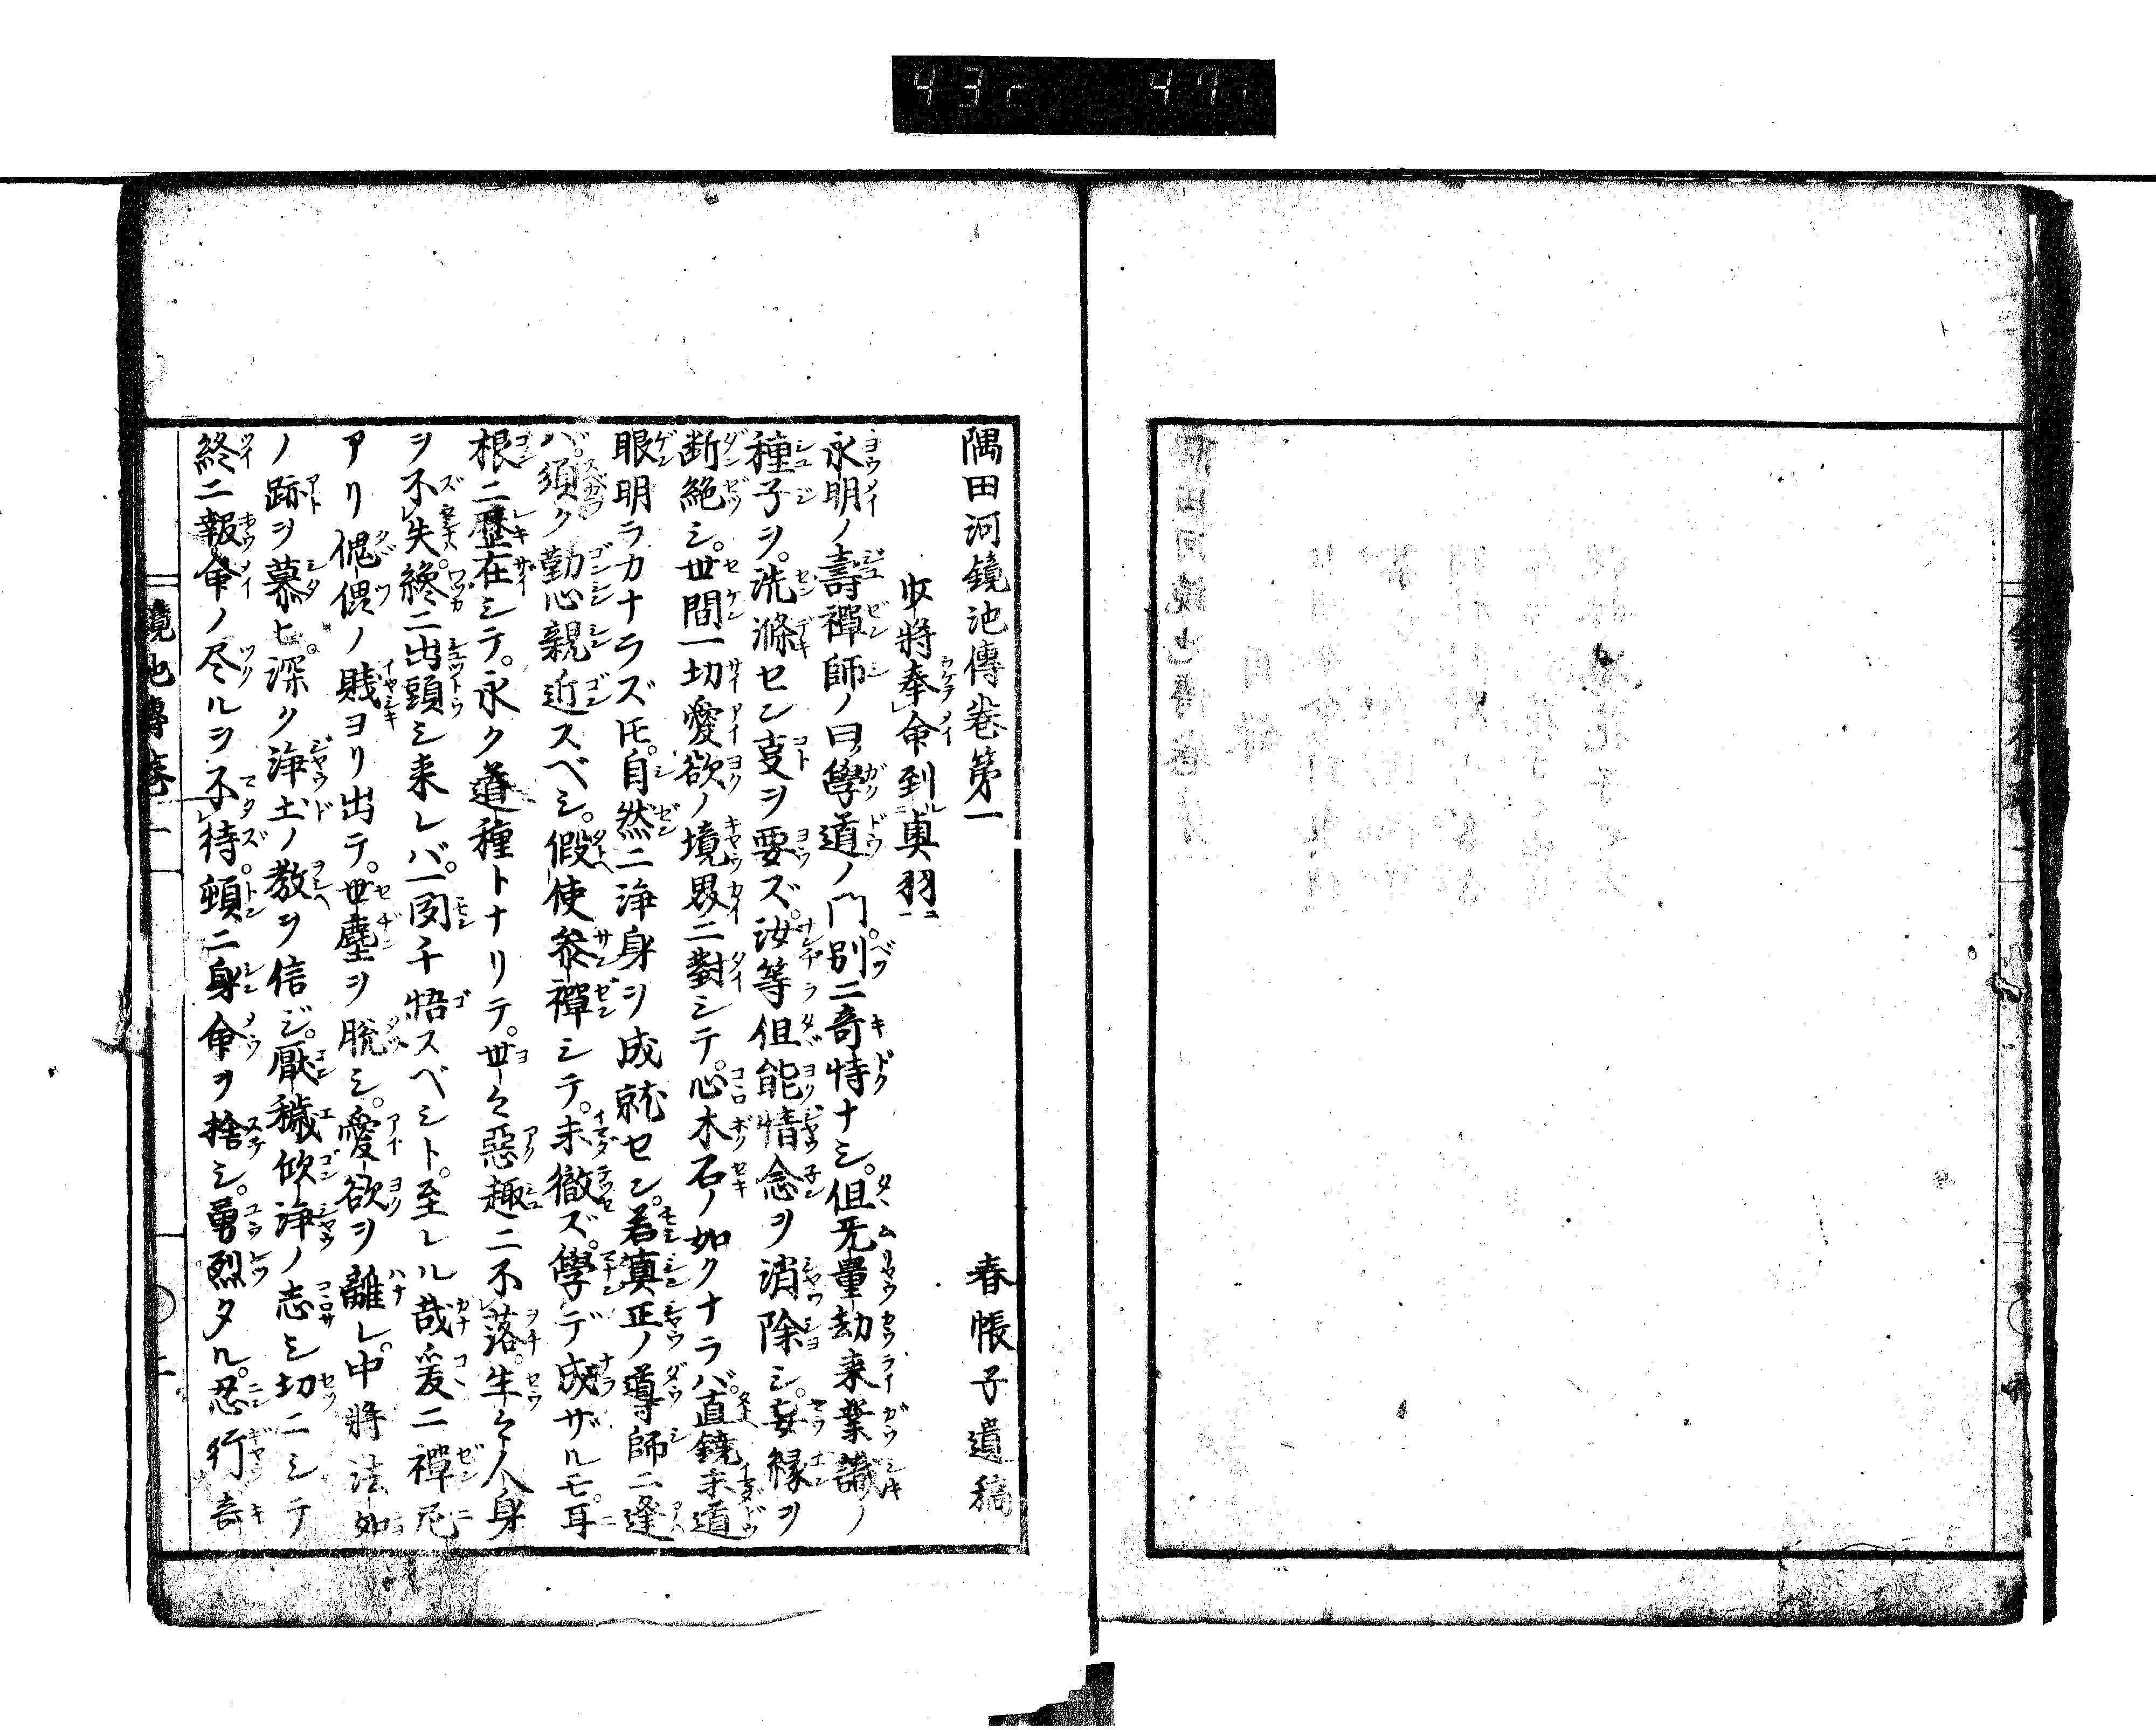 隅田河鏡池傳巻第一
春帳子遺稿
中將奉命到奥羽
永明ノ壽禪師ノ曰學道ノ門。別ニ奇特ナシ。但无量劫来業識ノ
種子ヲ。洗滌セン叓ヲ要ズ。汝等但能情念ヲ消除シ。妄縁ヲ
断絶シ。世間一切愛欲ノ境界ニ對シテ。心木石ノ如クナラバ。直饒未道
眼明ラカナラズ𪜈。自然ニ浄身ヲ成就セン。若真正ノ導師ニ逢
バ。須ク勤心親近スベシ。假使参禪シテ。未徹ズ。學デ成ザルモ。耳
根ニ歴在シテ。永ク道種トナリテ。世々惡趣ニ不落。生々人身
ヲ不失。纔ニ出頭シ来レバ。一聞千悟スベシト。至レル哉爰ニ禪尼
アリ傀儡ノ賤ヨリ出テ。世塵ヲ脱シ。愛欲ヲ離レ。中將法如
ノ跡ヲ慕ヒ。深ク浄土ノ教ヲ信ジ。厭穢欣浄ノ志シ切ニシテ
終ニ報命ノ尽ルヲ不待。頓ニ身命ヲ捨シ。勇烈タル。忍行奇
鏡池傳巻一